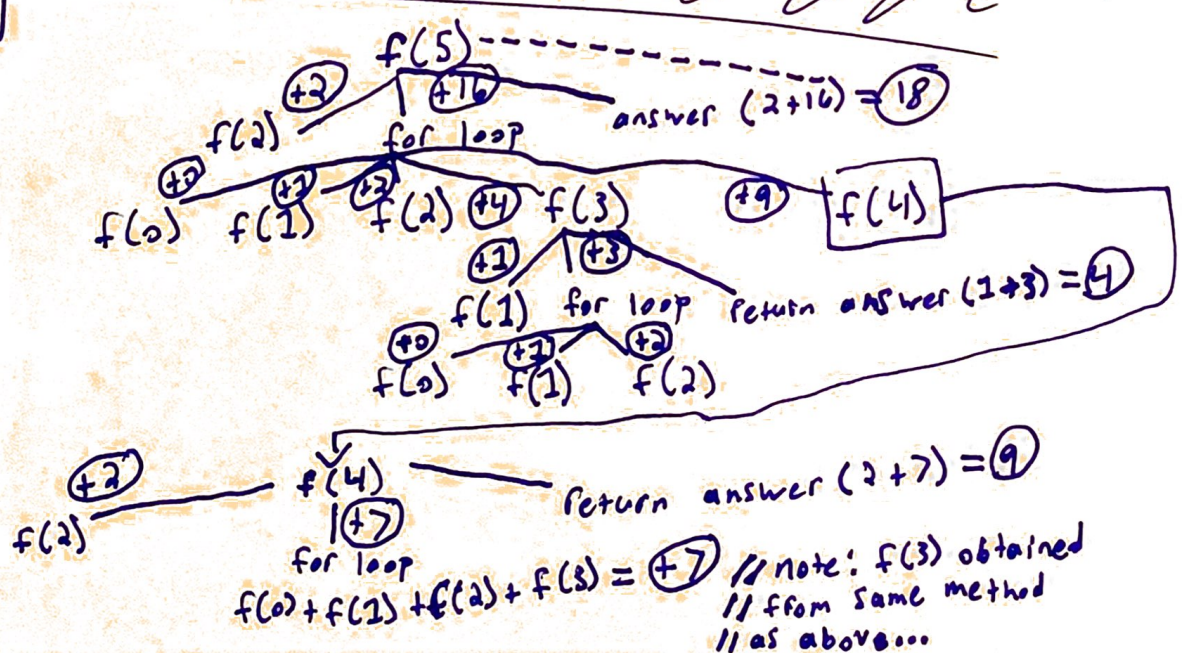 f(5)
+2 +16 answer (2+16) = 18
f(2) for loop
+0 +1 +2 +4 +9
f(0) f(1) f(2) f(3) f(4)
+1 +3
f(1) for loop return answer (1+3) = 4
+0 +1 +2
f(0) f(1) f(2)
+2 f(4) return answer (2+7) = 9
f(2) +7
for loop
f(0)+f(1)+f(2)+f(3) = +7
// note: f(3) obtained
// from same method
// as above...